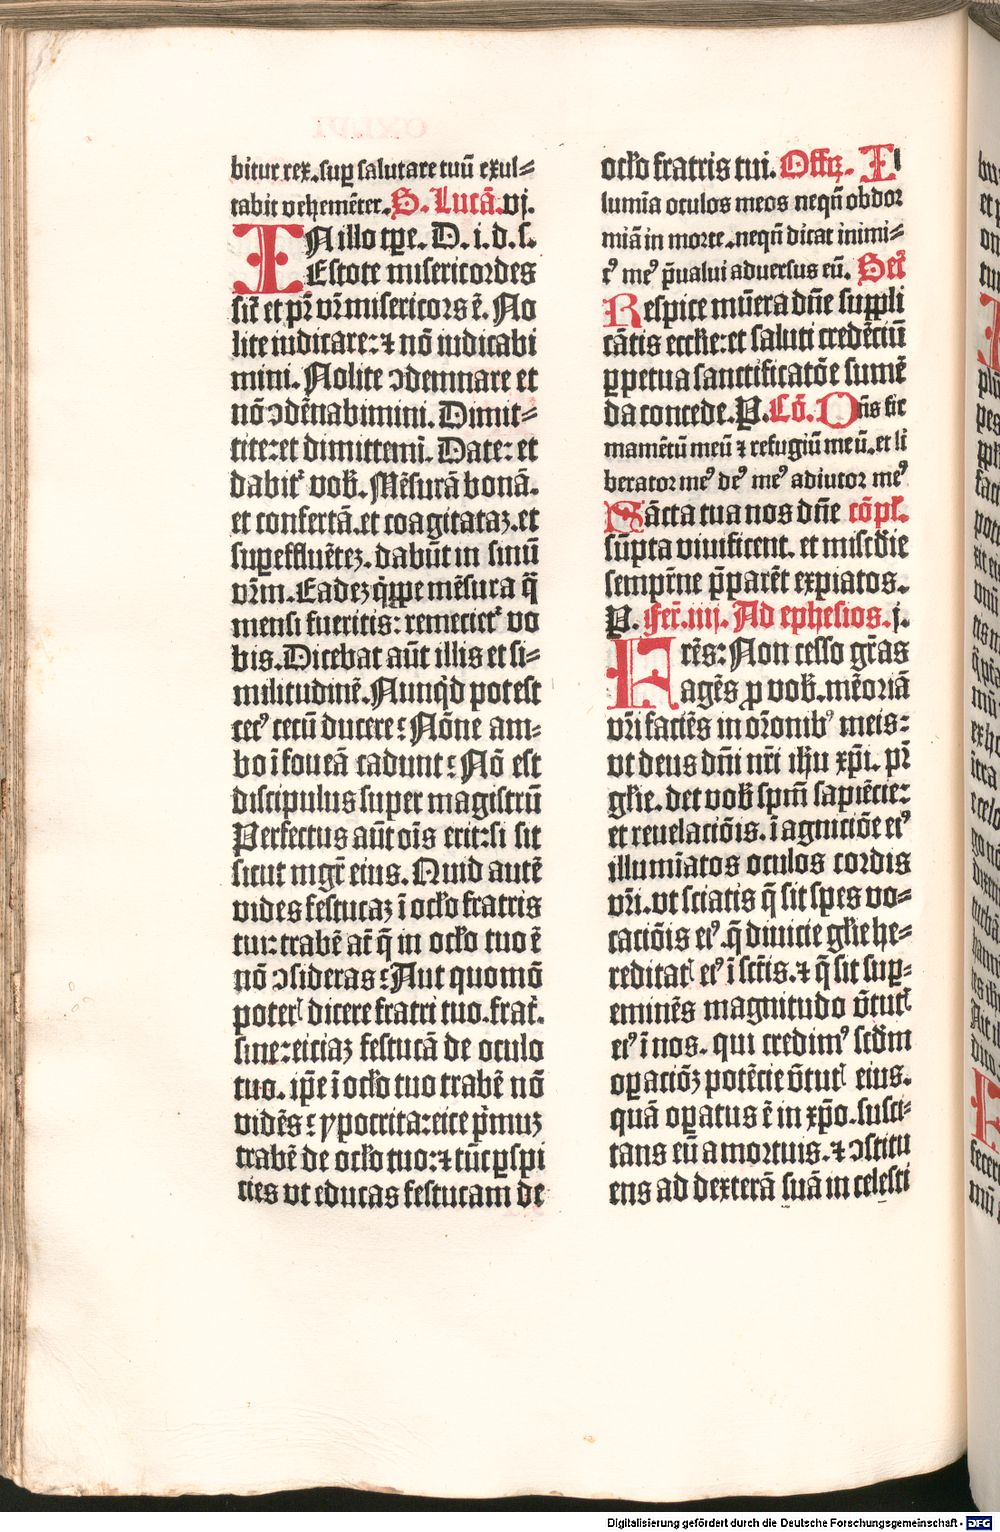 bitur rex. sup̲ salutare tuū exul⸗
tabit vehemēter. S. Lucā. vj.
IN illo tp̄e. D. i. d. s.
Estote misericordes
sic̄ et pr̄ vr̄ misericors ē. No
lite iudicare: ⁊ nō iudicabi
mini. Nolite ↄdemnare et
nō ↄdēnabimini. Dimit⸗
tite: et dimittemī. Date: et
dabit᷑ vob̄. Mēsurā bonā.
et confertā. et coagitataꝫ. et
suꝑeffluēteꝫ. dabūt in sinū
vr̄m. Eadeꝫ q̄ꝑpe mēsura q̄
mensi fueritis: remeciet᷑ vo
bis. Dicebat aūt illis et si⸗
militudinē. Nunq̄d potest
cecꝰ cecū ducere: Nōne am⸗
bo ī foueā cadunt: Nō est
discipulus super magistrū
Perfectus aūt oīs erit: si sit
sicut mgr̄ eius. Quid autē
vides festucaꝫ ī oclo fratris
tui: trabē at̄ q̄ in oclo tuo ē
nō ↄsideras: Aut quomō
poteris dicere fratri tuo. frat̄.
sine: eiciaꝫ festucā de oculo
tuo. ip̄e ī oclo tuo trabē nō
vidēs: ypocrita: eice p̄muꝫ
trabē de oclo tuo: ⁊ tūc ꝑspi
cies vt educas festucam de
oclo fratris tui. Offꝝ. Il
lumīa oculos meos neqn̄ obdor
miā in morte. neqn̄ dicat inimi⸗
cꝰ meꝰ p̄ualui aduersus eū. Secr̄
Respice mūera dn̄e suppli
cātis eccle: et saluti credēciū
ꝑpetua sanctificatōe sumē
da concede. P. Cō. Dn̄s fir
mamētū meū ⁊ refugiū meū. et li
berator meꝰ deꝰ meꝰ adiutor meꝰ
Sācta tua nos dn̄e cōpl̄.
sūpta viuificent. et misc̄die
sempr̄ne p̄parēt expiatos.
P. fer̄. iiij. Ad ephesios. j.
Frēs: Non cesso gr̄as
agēs ꝓ vob̄. mēoriā
vr̄i faciēs in or̄onibꝰ meis:
vt deus dn̄i nr̄i ihū xp̄i. pr̄
glie. det vob̄ spm̄ sapiēcie:
et reuelaciōis. ī agniciōe eiꝰ
illumīatos oculos cordis
vr̄i. vt sciatis q̄ sit spes vo⸗
caciōis eiꝰ. q̄ diuicie glie he⸗
reditatis eiꝰ ī sctīs. ⁊ q̄ sit suꝑ⸗
eminēs magnitudo v̄tutis
eiꝰ ī nos. qui credimꝰ scd̄m
oꝑaciōꝫ potēcie v̄tutis eius.
quā oꝑatus ē in xp̄o. susci⸗
tans eū a mortuis. ⁊ ↄstitu
ens ad dexterā suā in celesti
Digitalisierung gefördert durch die Deutsche Forschungsgemeinschaft - DFG